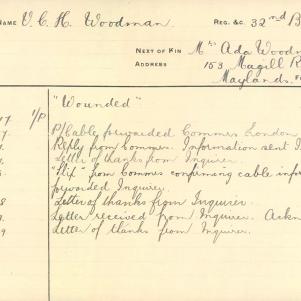 NAME V.C.H. Woodman REG. &C. 32nd B
NEXT OF KIN Mrs Ada Woodm
ADDRESS 153 Magill R
Maylands.
"Wounded"
17 1/P
P/Cable forwarded Commrs London
Reply from Commrs. Information sent I
Letter of thanks from Inquirer.
"Slip" from Commrs confirming cable infor
forwarded Inquirer.
Letter of thanks from Inquirer.
Letter received from Inquirer. Ackn
9 Letter of thanks from Inquirer.